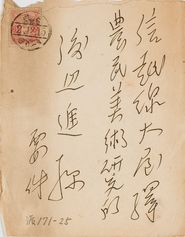 信越線大屋驛
農民美術研究所
渡辺進 様
要件
渡171-25